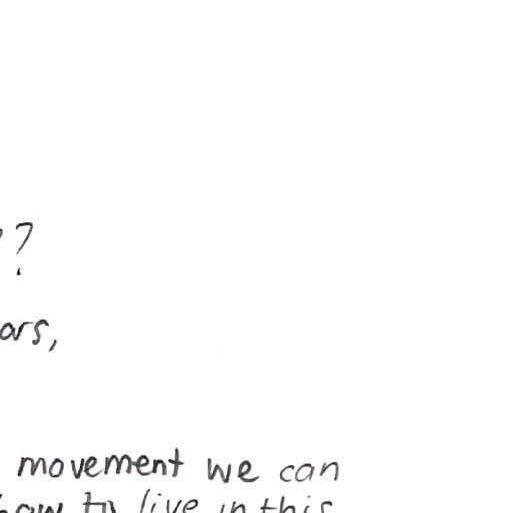 ?
movement we can
how to live in this